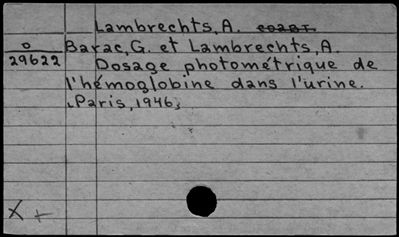 Lambrechts, A.
o
29622
Barac, G. et Lambrechts, A.
Dosage photométrique de
l'hémoglobine dans l'urine.
Paris, 1946
X +